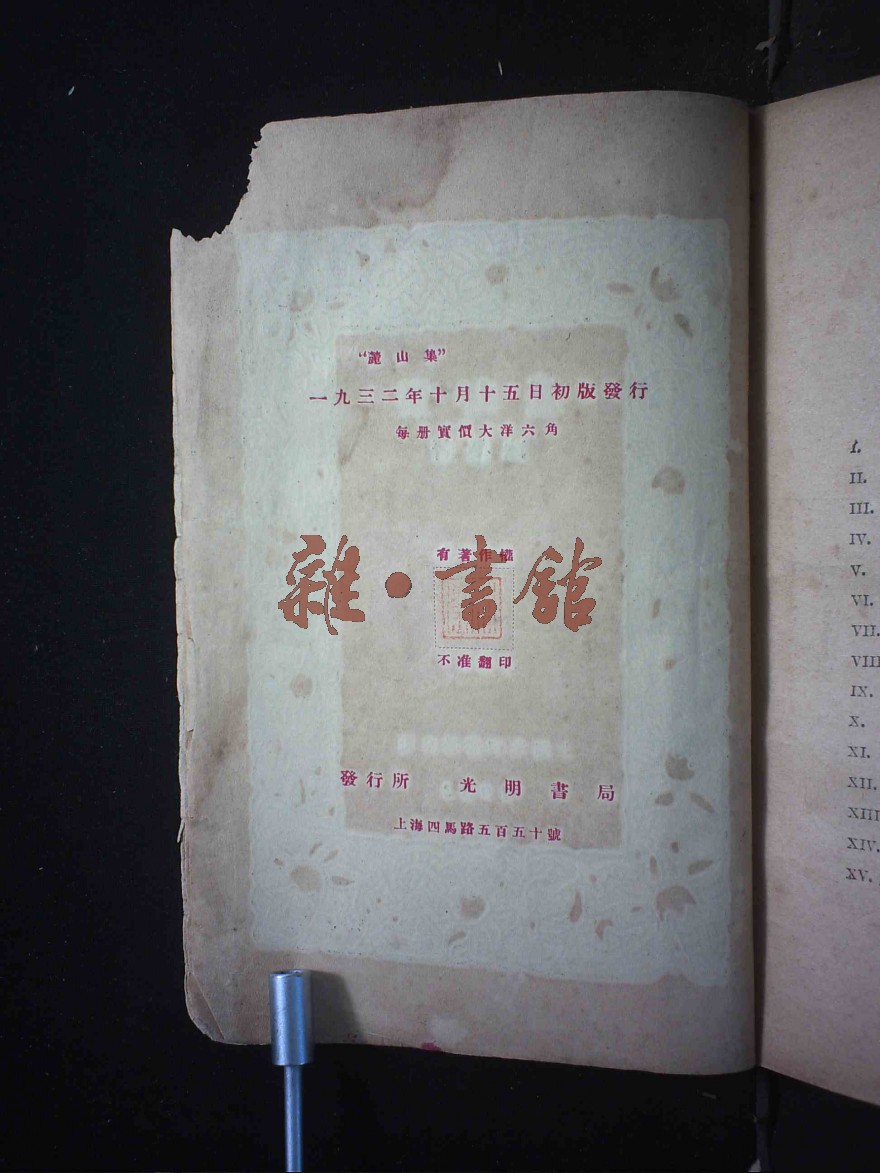 “麓山集”
一九三二年十月十五日初版發行
每册實價大洋六角
有著作權
雜·書館
不准翻印
發行所 光明書局
上海四馬路五百五十號
I.
II.
III.
IV.
V.
VI.
VII.
VIII
IX.
X.
XI.
XII.
XIII
XIV.
XV.